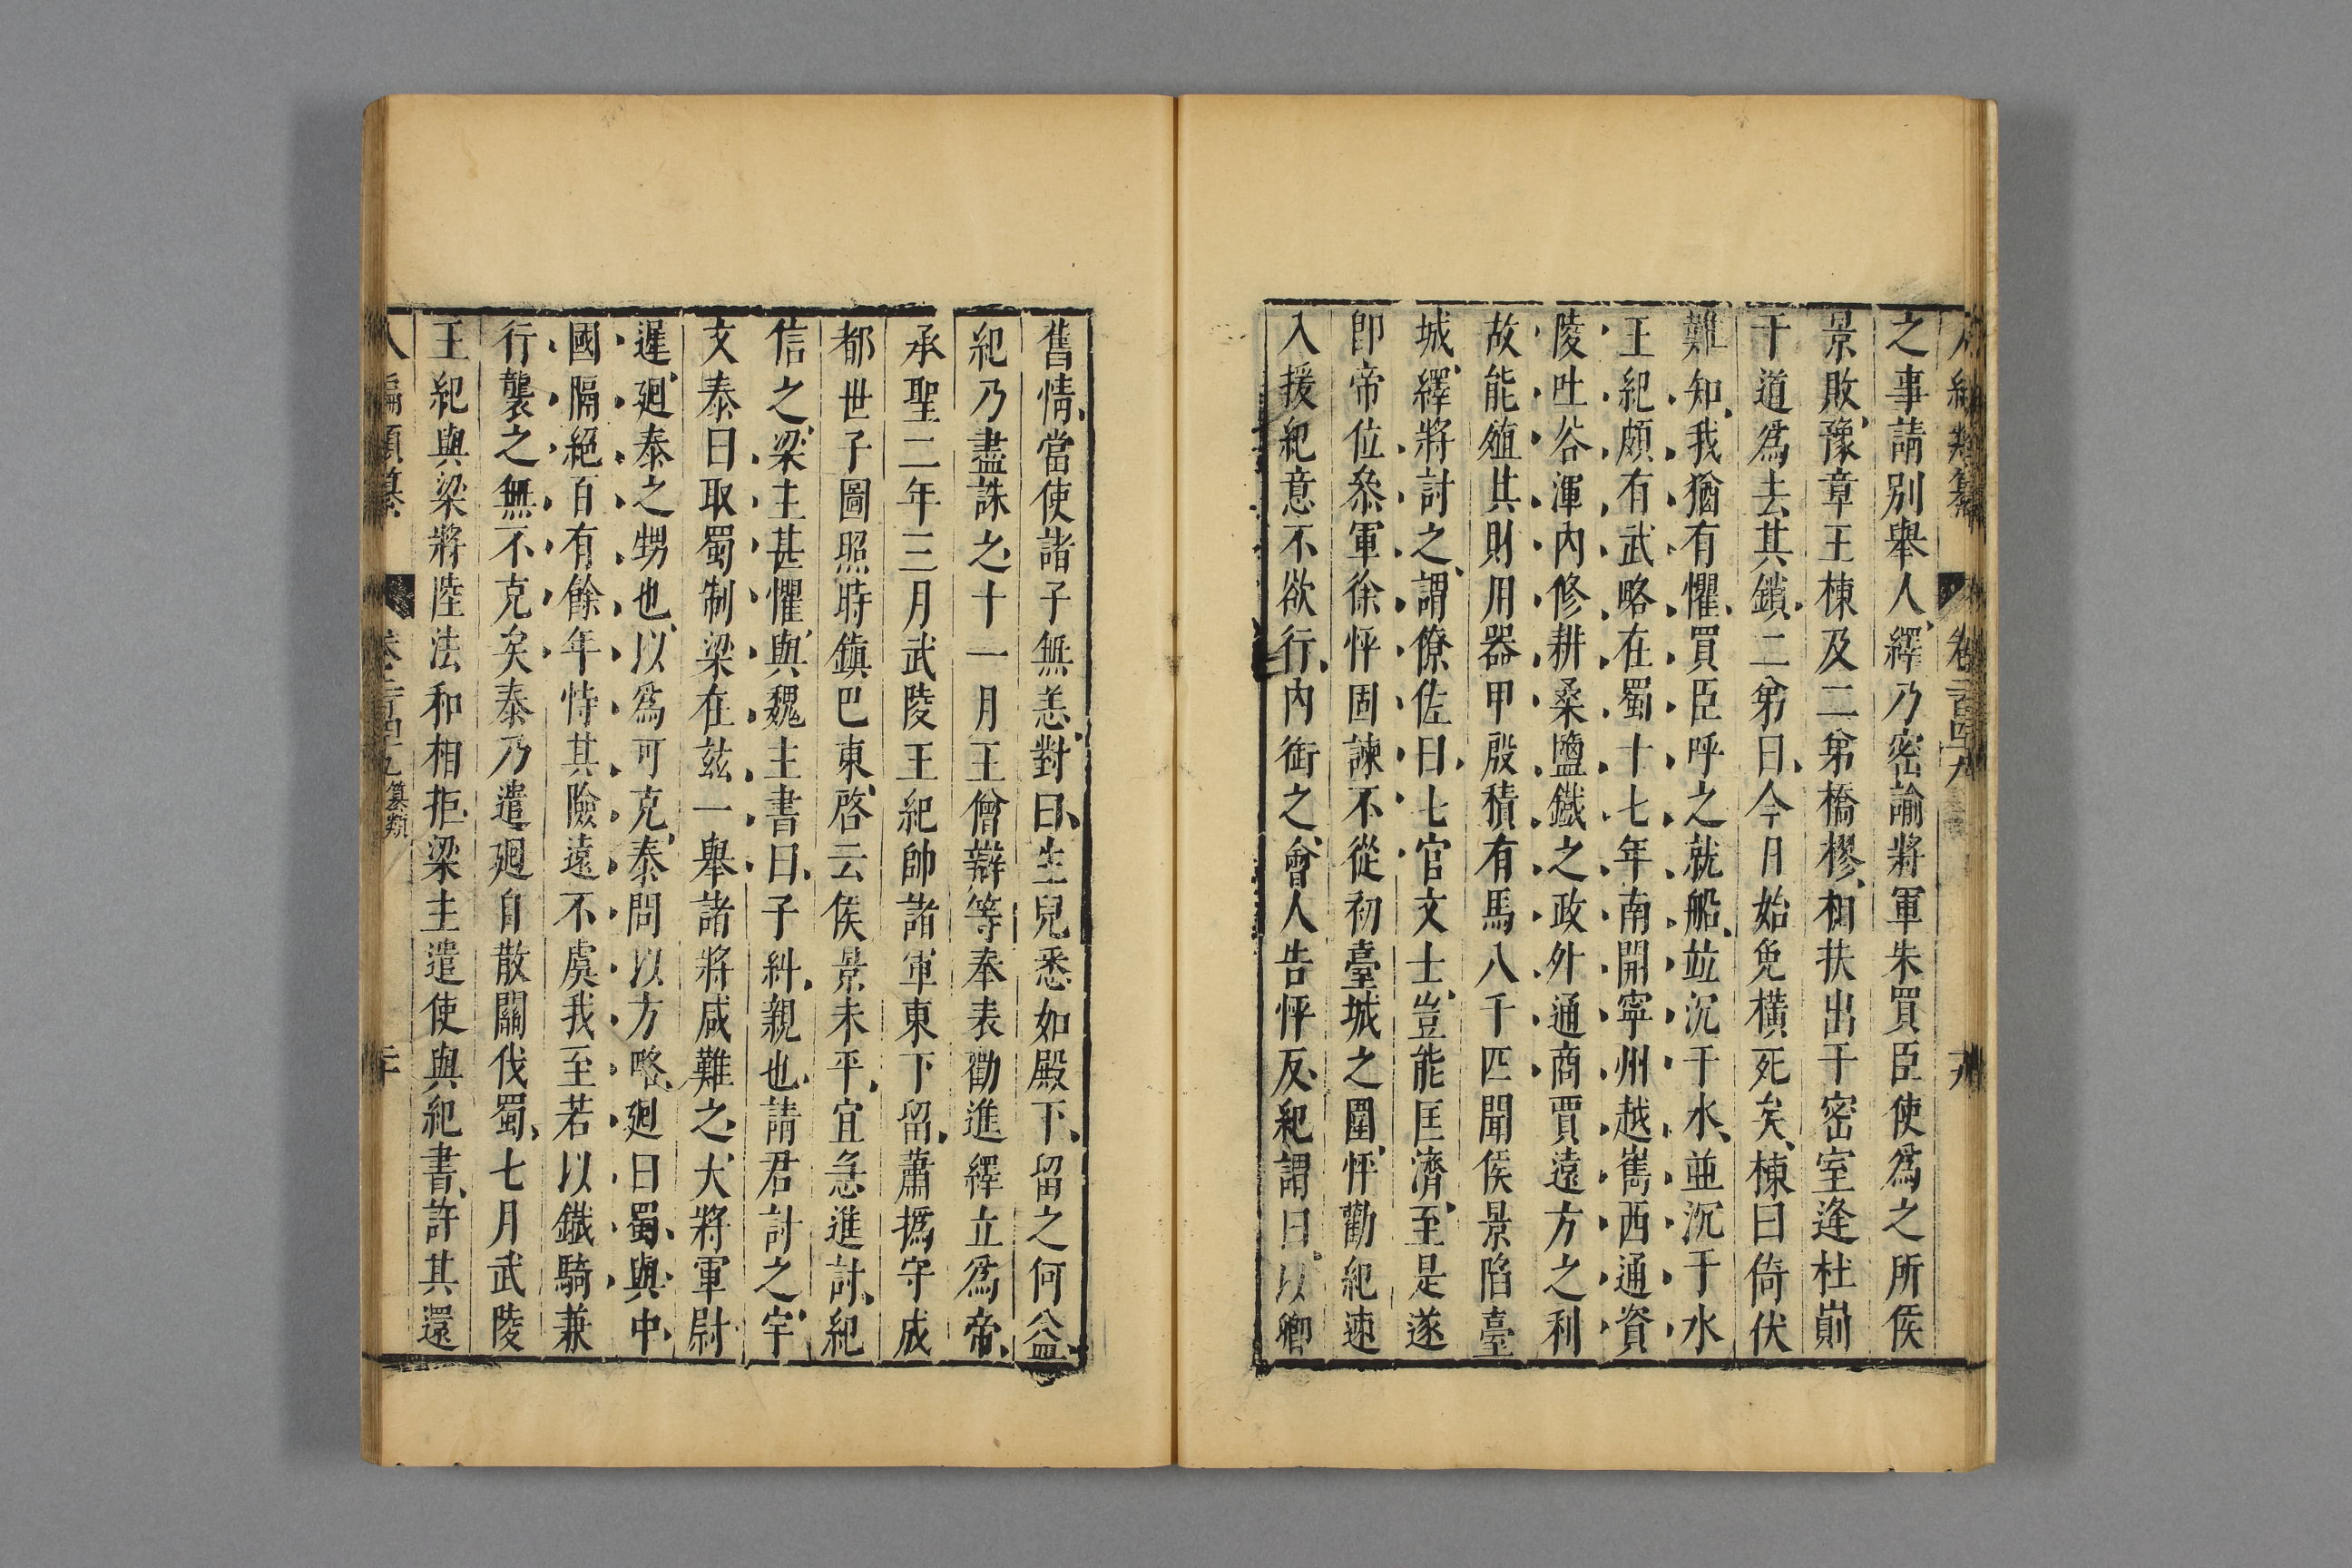 之事請別舉人繹乃密諭將軍朱買臣使爲之所侯
景敗豫章王棟及二弟橋樛相扶出于密室逢杜崱
于道爲去其鎖二弟曰今月始免橫死矣棟曰倚伏
難知我猶有懼買臣呼之就船竝沉于水並沉于水
王紀頗有武略在蜀十七年南開寧州越嶲西通資
陵吐谷渾內修耕桑鹽鐵之政外通商賈遠方之利
故能殖其財用器甲殷積有馬八千匹聞侯景陷臺
城繹將討之謂僚佐曰七官文士豈能匡濟至是遂
卽帝位叅軍徐怦固諫不從初臺城之圍怦勸紀速
入援紀意不欲行內銜之會人告怦反紀謂曰以卿
舊情當使諸子無恙對曰生兒悉如殿下留之何益
紀乃盡誅之十一月王僧辯等奉表勸進繹立爲帝
承聖二年三月武陵王紀帥諸軍東下留蕭撝守成
都世子圖照時鎮巴東啓云侯景未平宜急進討紀
信之梁主甚懼與魏主書曰子糾親也請君討之宇
文泰曰取蜀制梁在茲一舉諸將咸難之大將軍尉
遲廻泰之甥也以爲可克泰問以方略廻曰蜀與中
國隔絕百有餘年恃其險遠不虞我至若以鐵騎兼
行襲之無不克矣泰乃遣廻自散關伐蜀七月武陵
王紀與梁將陸法和相拒梁主遣使與紀書許其還